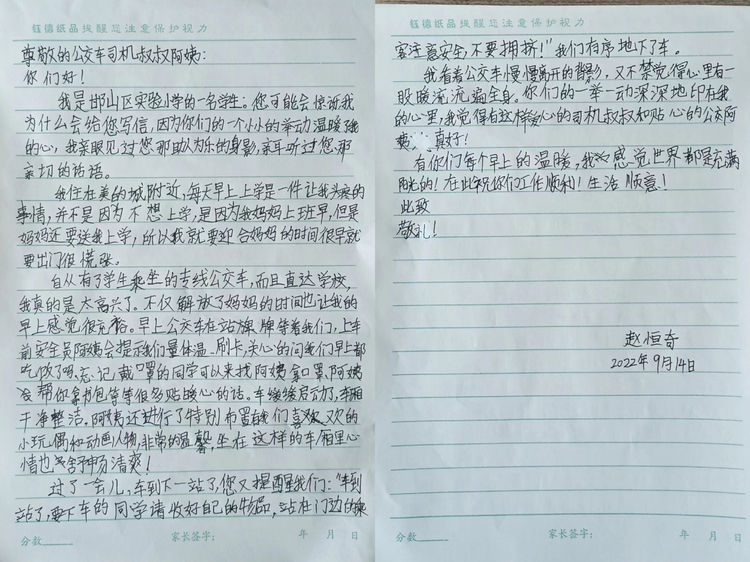 钰德纸品提醒您注意保护视力
尊敬的公交车司机叔叔阿姨:
你们好!
我是邯山区实验小学的一名学生。您可能会惊讶我
为什么会给您写信,因为你们的一个小小的举动温暖了我
的心,我亲眼见过您那助人为乐的身影,亲耳听过您那
亲切的话语。
我住在美的城附近,每天早上上学是一件让我头疼的
事情,并不是因为不想上学,是因为我妈妈上班早,但是
妈妈还要送我上学,所以我就要迎合妈妈的时间很早就
要出门很慌张。
自从有了学生乘坐的专线公交车,而且直达学校,
我真的是太高兴了。不仅解放了妈妈的时间也让我的
早上感觉很充裕。早上公交车在站牌等着我们,上车
前安全员阿姨会提示我们量体温、刷卡,关心的问我们早上都
吃饭了吗,忘记戴口罩的同学可以来找阿姨拿口罩,阿姨
帮你拿书包等等很多贴暖心的话。车缓缓启动了,车厢
干净整洁。阿姨还进行了特别布置有我们喜欢的
小玩偶和动画人物,非常的温馨,坐在这样的车厢里心
情也舒畅清爽!
过了一会儿,车到下一站了,您又提醒我们:“车到
站了,要下车的同学请收好自己的物品,站在门边的乘
分数
家长签字:
年 月 日
钰德纸品提醒您注意保护视力
客注意安全,不要拥挤!”我们有序地下了车。
我看着公交车慢慢离开的背影,又不禁觉得心里有一
股暖流流遍全身。你们的一举一动深深地印在我
的心里,我觉得有这样暖心的司机叔叔和贴心的公交阿
姨真好!
有你们每个早上的温暖,我感觉世界都是充满
阳光的!在此祝你们工作顺利!生活顺意!
此致
敬礼!
赵恒奇
2022年9月14日
分数
家长签字:
年 月 日